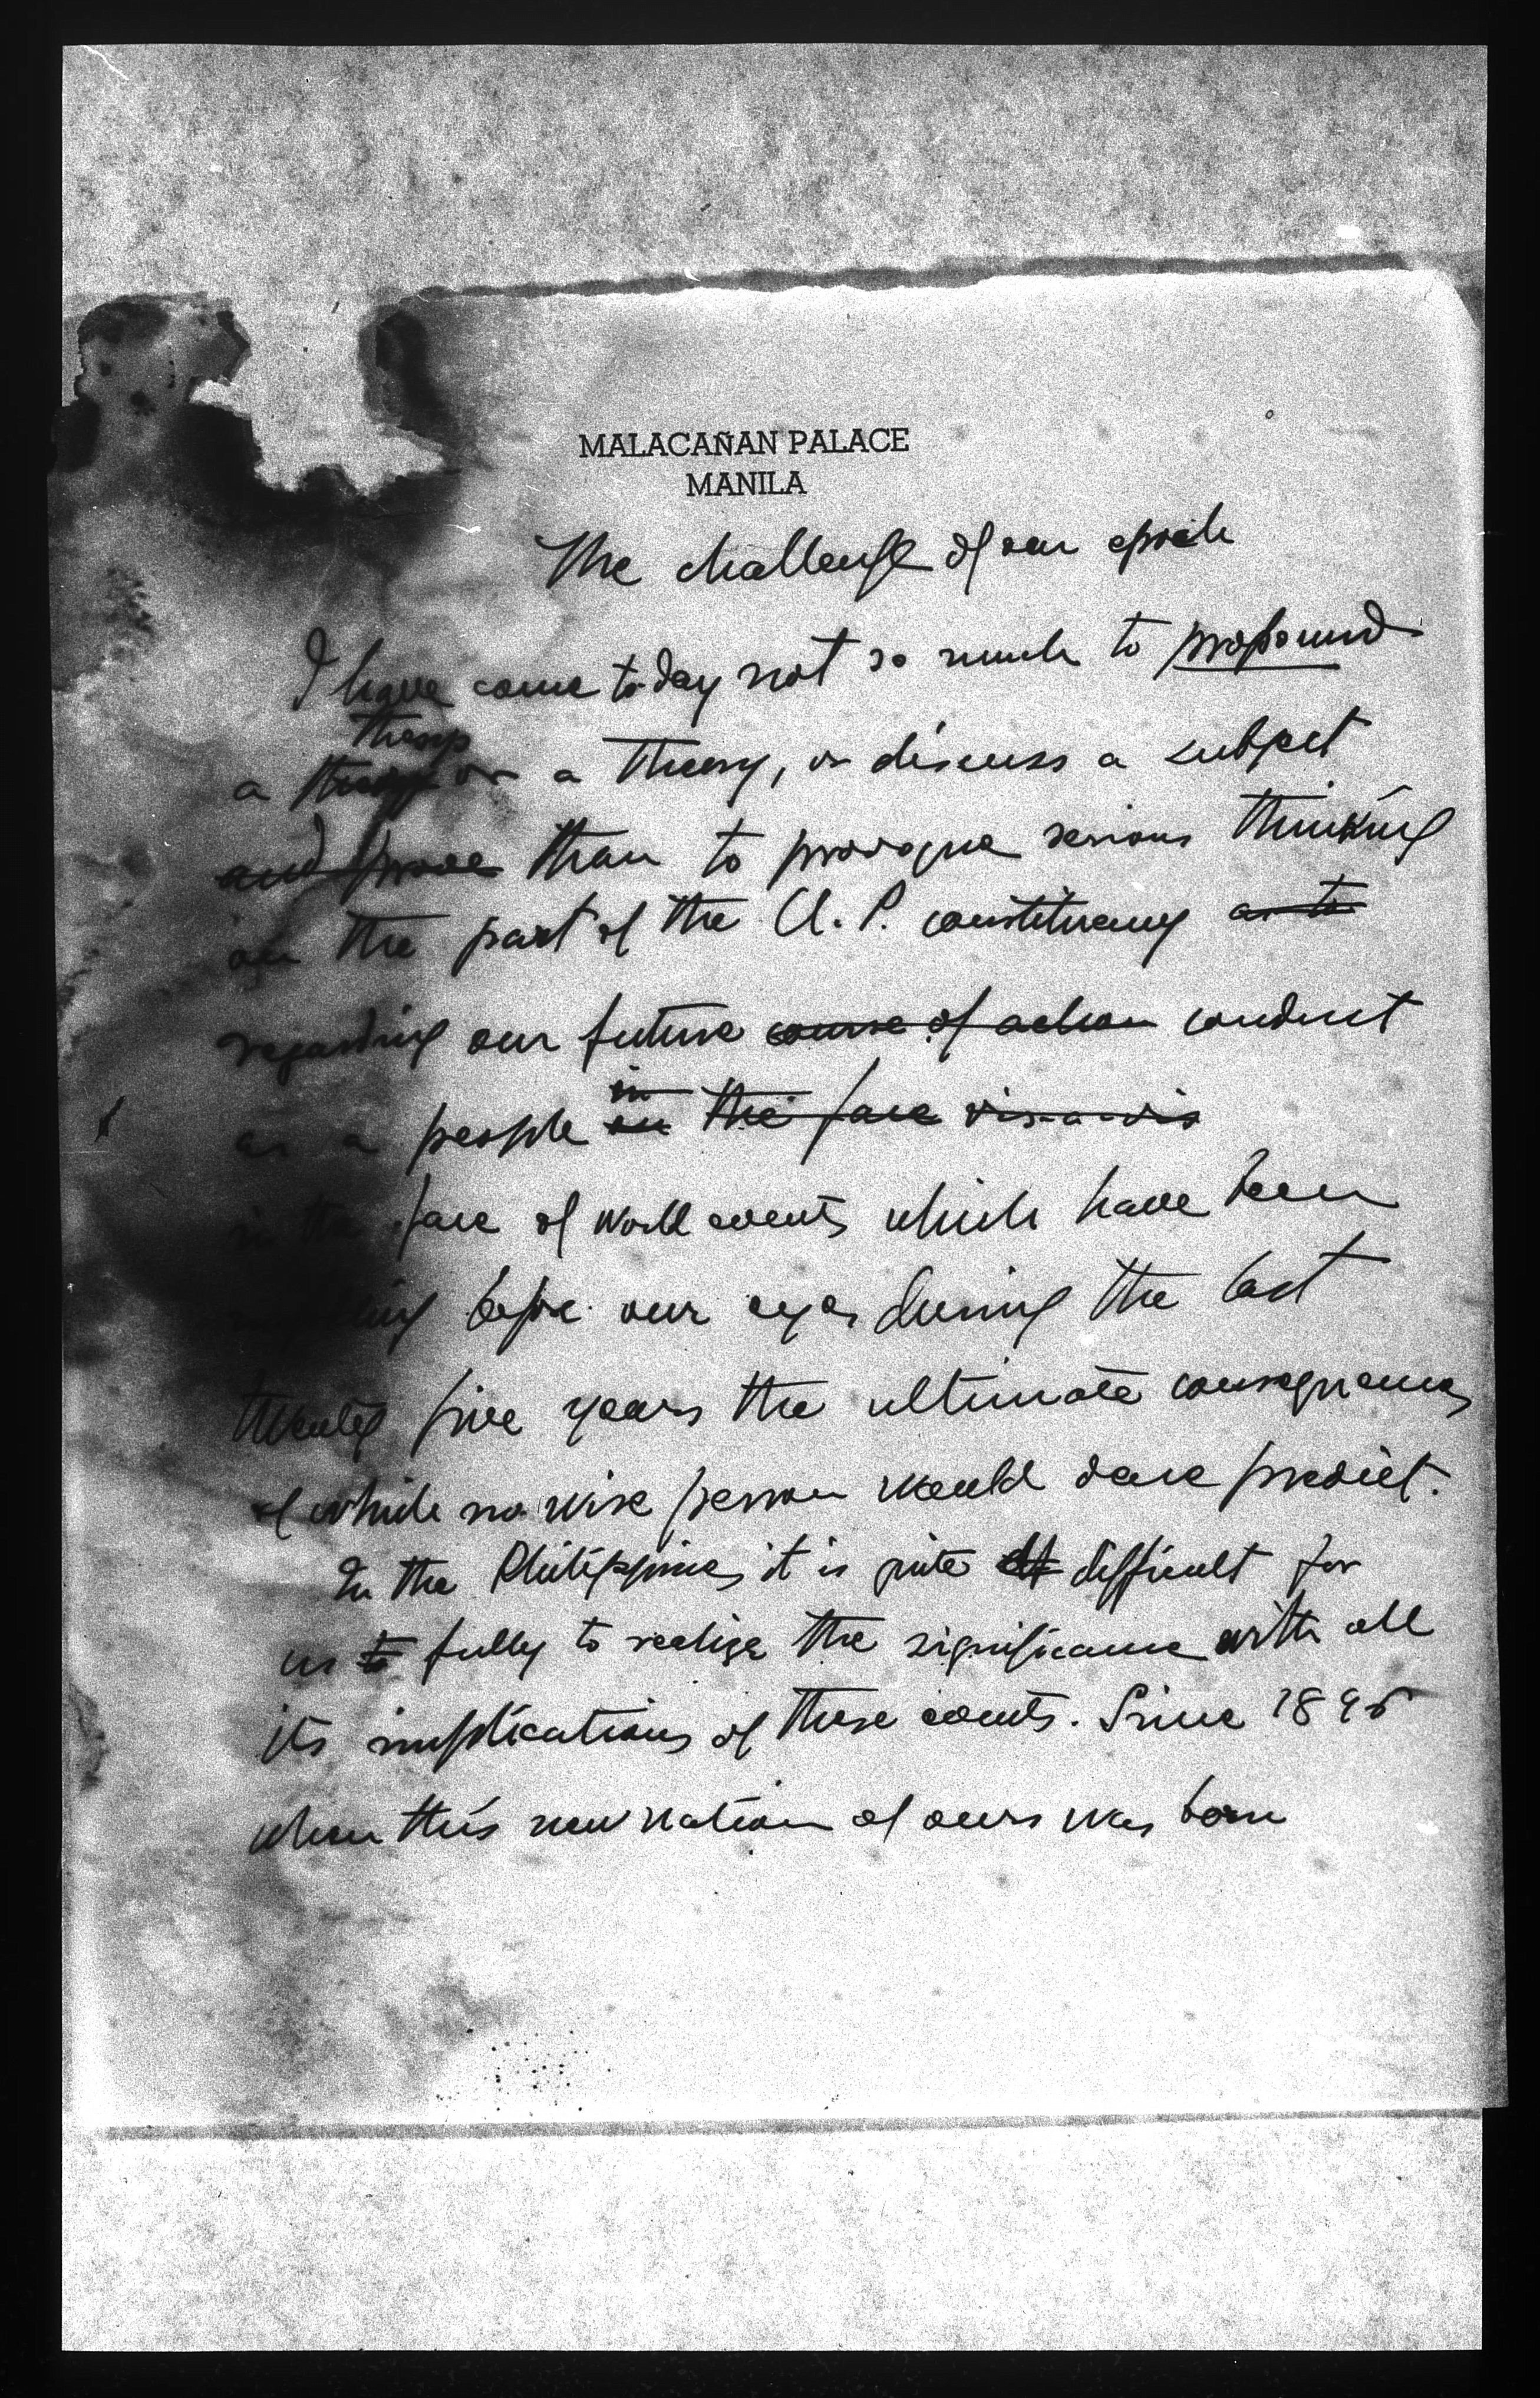 MALACAÑAN PALACE
MANILA
The challenge of our epoch
I have come today not so much to propound
a or a theory, or discuss a subject
and prove than to provoque serious thinking
on the part of the U. P. constituency as to
regarding our future course of action conduct
in
as a people on the face vis-a-vis
in the face of world events which have been
before our eyes during the last
twenty five years the ultimate consequences
of which no wise person would dare predict.
In the Philippines it is quite difficult for
us to fully to realize the significance with all
its implications of these events. Since 1896
when this new nation of ours was born